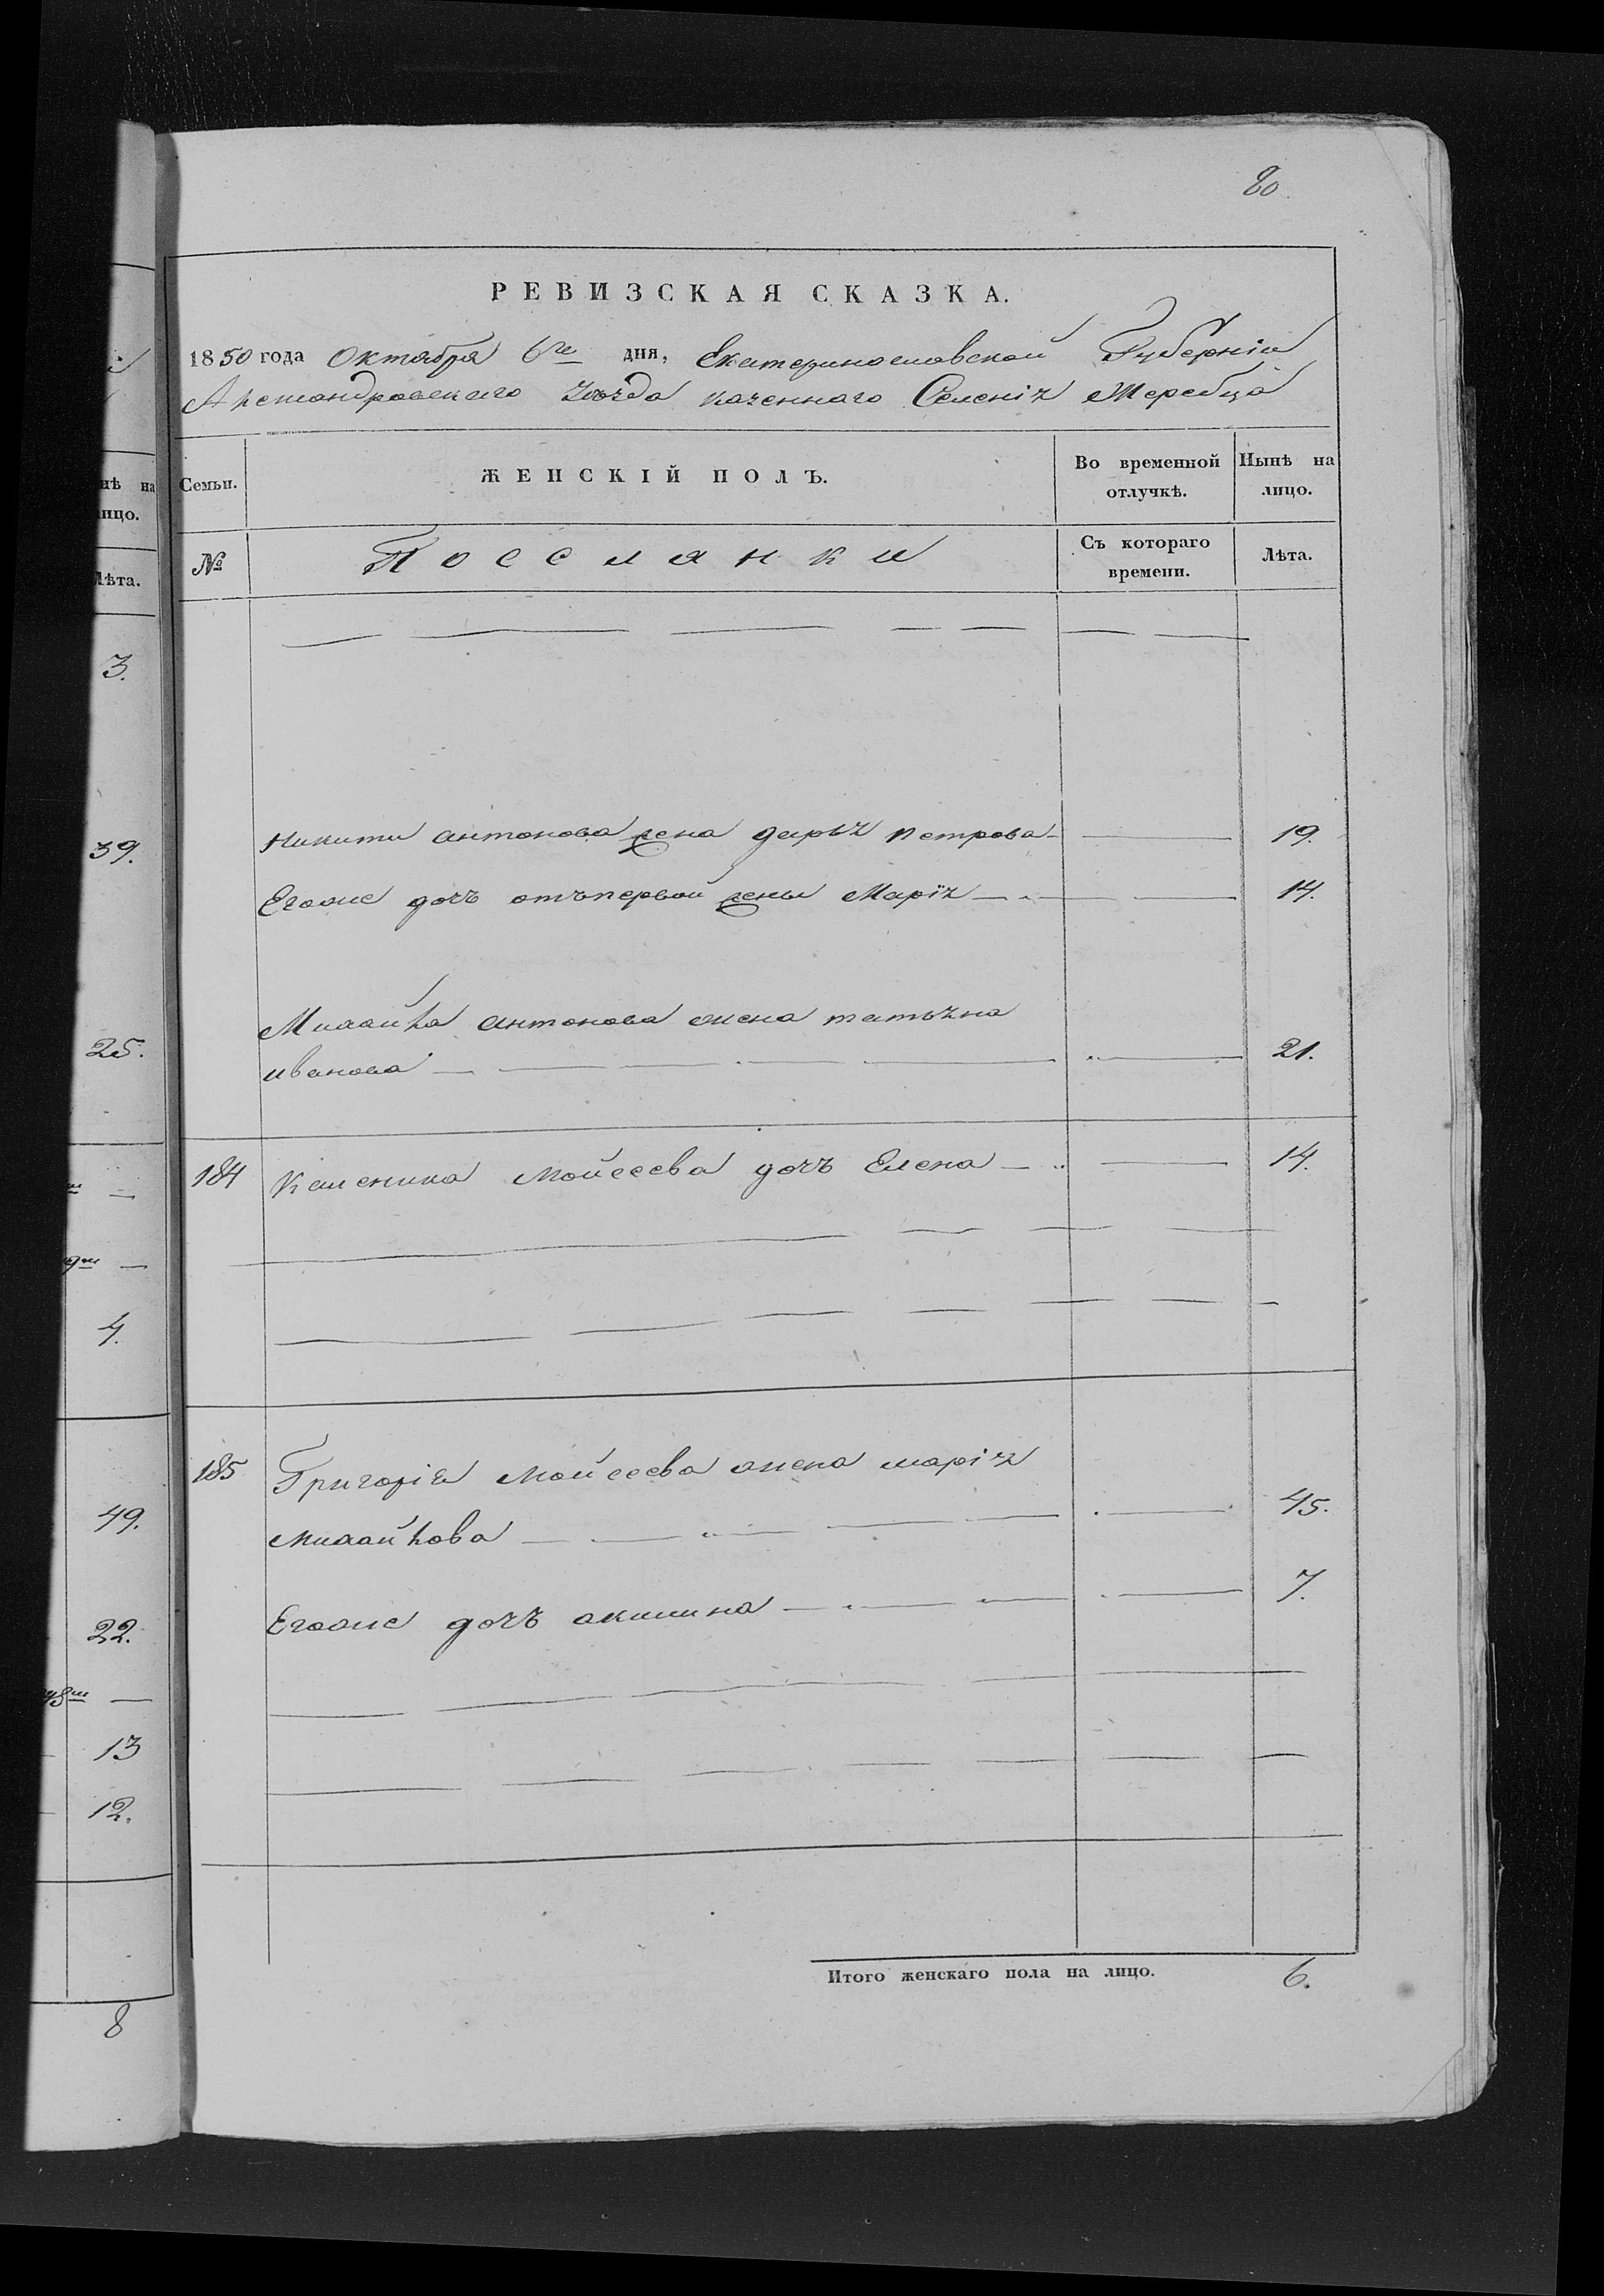 80
РЕВИЗСКАЯ СКАЗКА.
1850 года Октября 6го дня, Екатеринославской Губерніи
Александровскаго уѣзда казеннаго Селенія Жеребца
нѣ на
ицо.
Лѣта.
Семьи.
ЖЕНСКІЙ ПОЛЪ.
Во временной отлучкѣ.
Нынѣ на лицо.
№
Поселянки
Съ котораго времени.
Лѣта.
3.
39.
Никиты антонова жена дарья петрова 19.
Егоже дочь отъпервой жены Марія 14.
Михайла антонова жена татьяна
25.
иванова 21.
184 Каленика Мойсеева дочь Елена 14.
4.
185 Григорія Мойсеева жена марія
49.
михайлова 45.
Егоже дочь акилина 7.
22.
13
12.
Итого женскаго пола на лицо. 6.
8